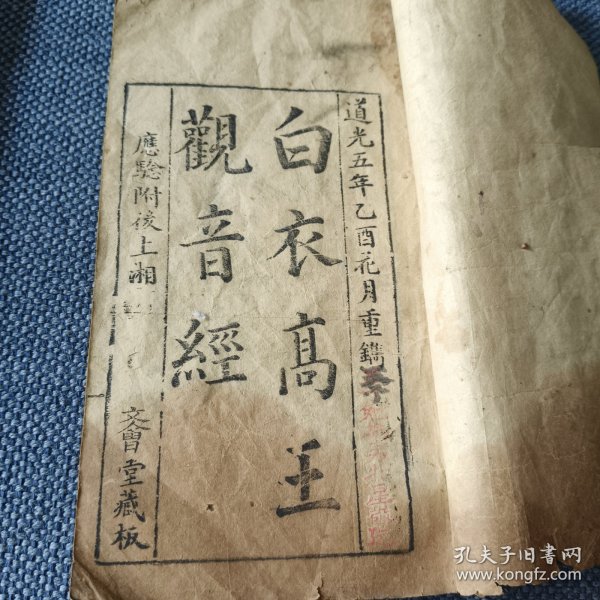 道光五年乙酉花月重鐫
白衣高王
觀音經
應驗附後上湘
文會堂藏板
孔夫子旧書网
www.kongfz.com